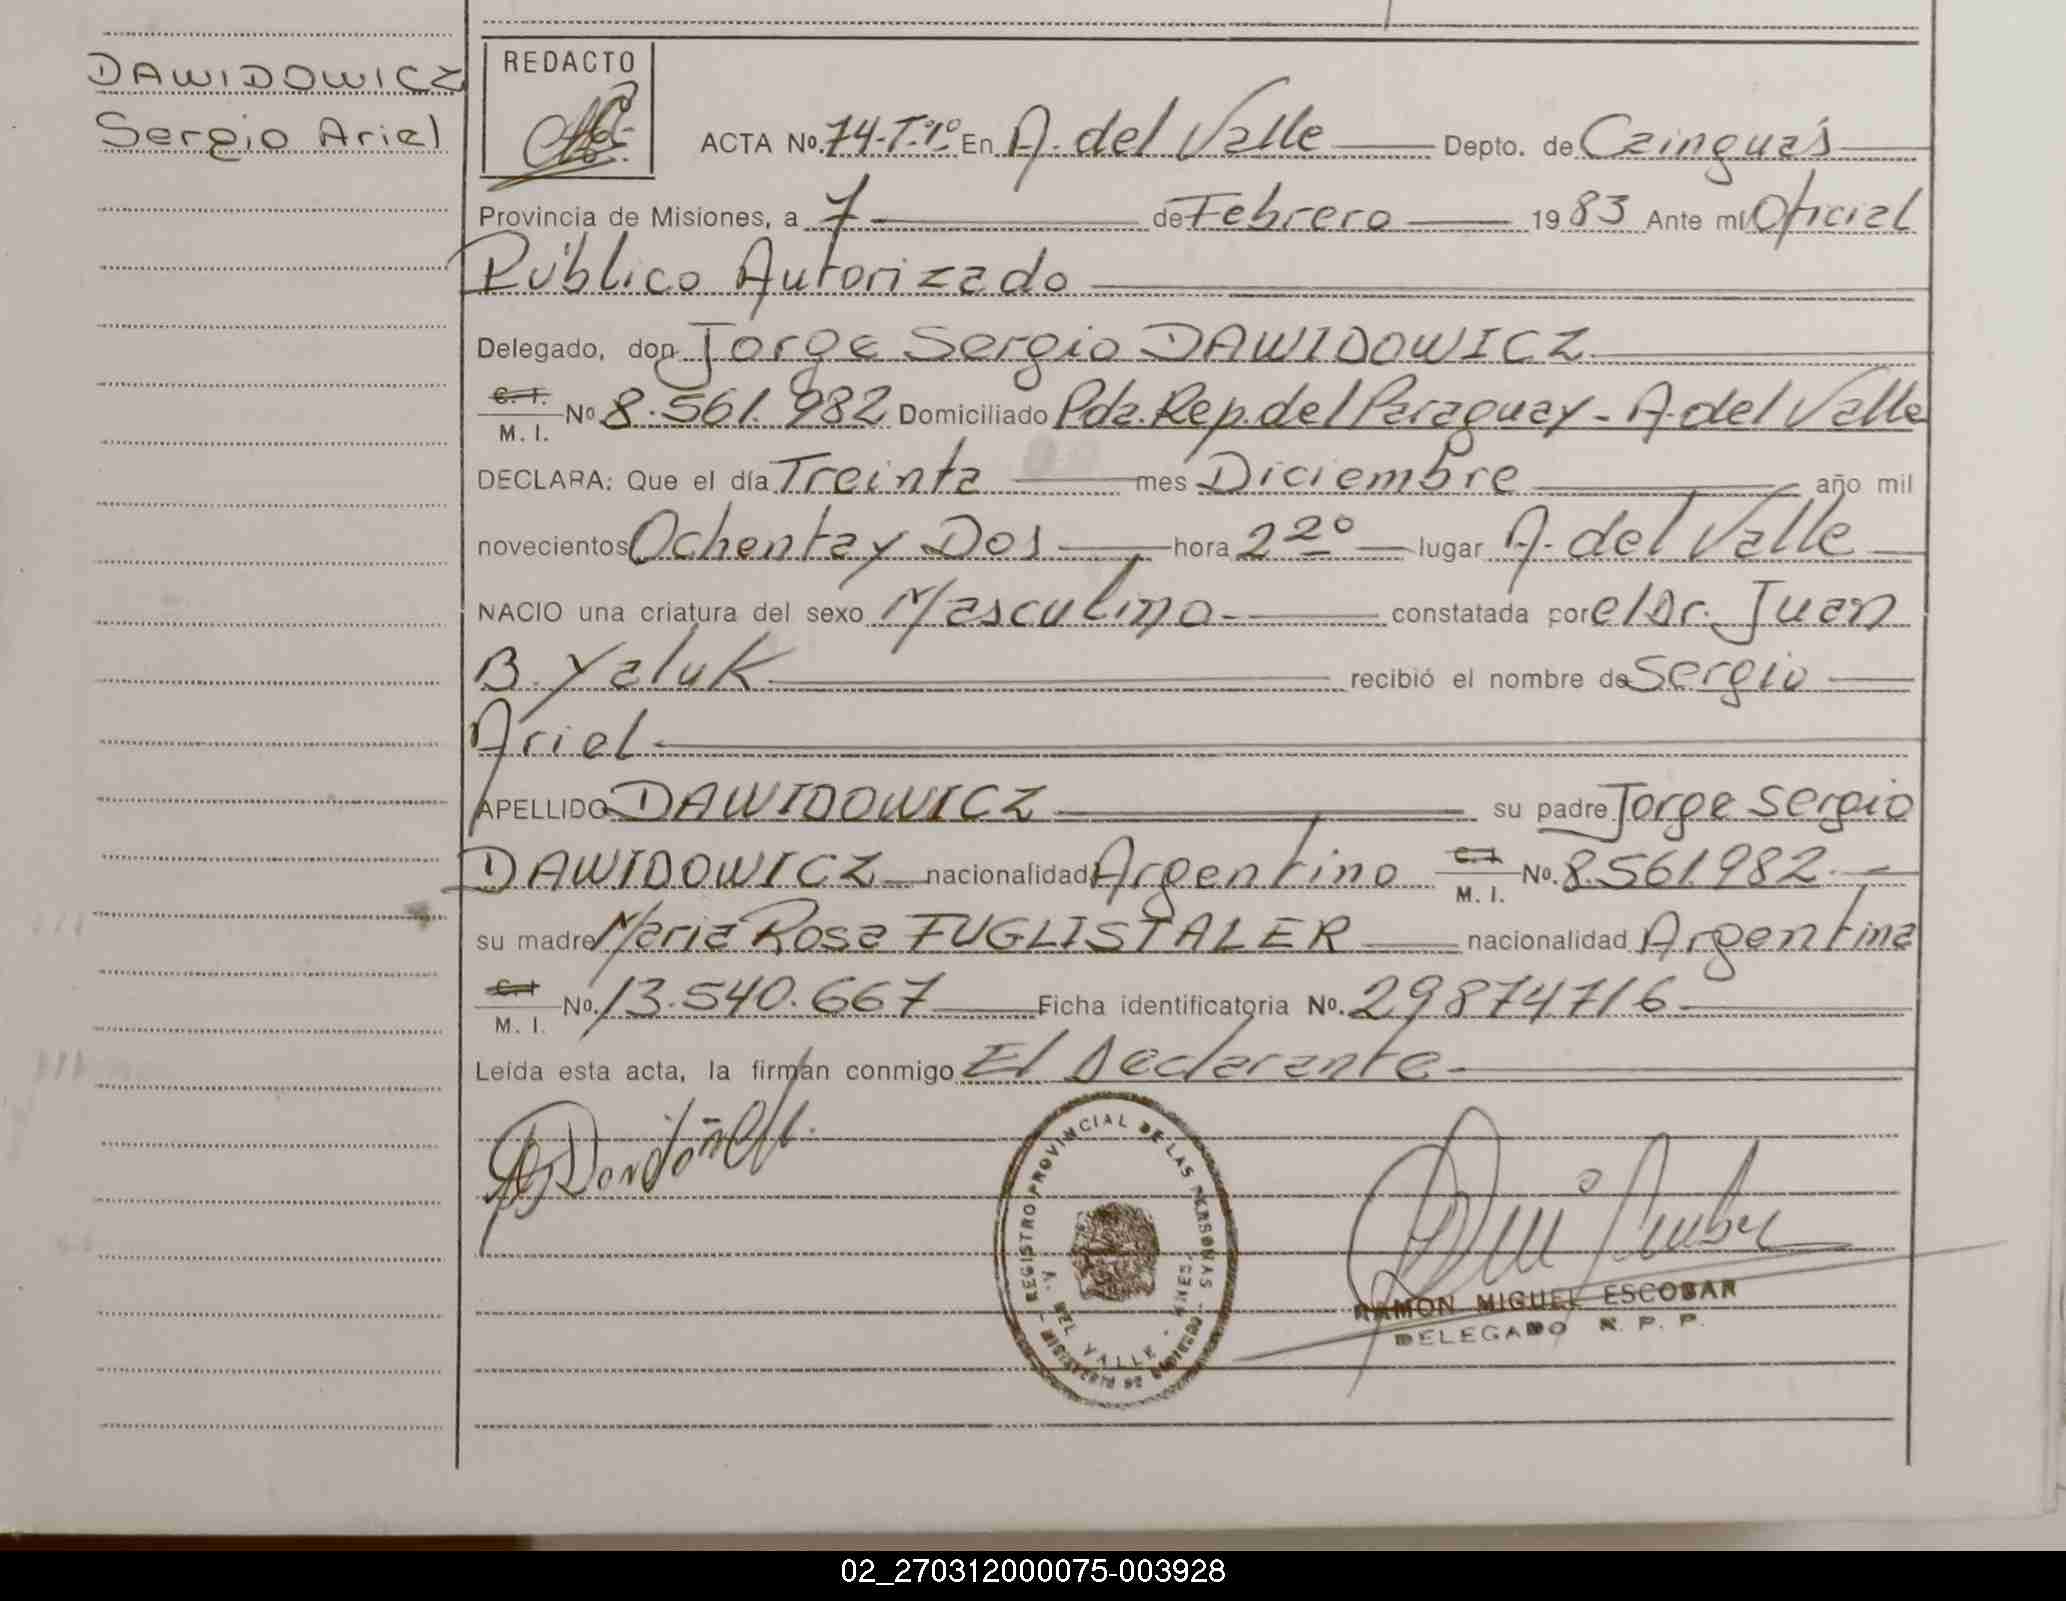 DAWIDOWICZ
Sergio Ariel
REDACTO
ACTA No. 74-T.1º En A. del Valle Depto. de Cainguás
Provincia de Misiones, a 7 de Febrero 1983 Ante mí Oficial
Público Autorizado
Delegado, don Jorge Sergio DAWIDOWICZ
C. I. M. I. No 8.561.982 Domiciliado Pda. Rep. del Paraguay - A. del Valle
DECLARA: Que el día Treinta mes Diciembre año mil
novecientos Ochenta y Dos hora 22º lugar A. del Valle
NACIO una criatura del sexo Masculino constatada por el Dr. Juan
B. Yaluk recibió el nombre de Sergio
Ariel
APELLIDO DAWIDOWICZ su padre Jorge Sergio
DAWIDOWICZ nacionalidad Argentino C. I. M. I. No. 8.561.982
su madre Maria Rosa FUGLISTALER nacionalidad Argentina
C. I. M. I. No. 13.540.667 Ficha identificatoria No. 29874716
Leída esta acta, la firman conmigo El Declarante
REGISTRO PROVINCIAL DE LAS PERSONAS
A. DEL VALLE - MNES.
MINISTERIO DE GOBIERNO
RAMON MIGUEL ESCOBAR
DELEGADO R. P. P.
02_270312000075-003928